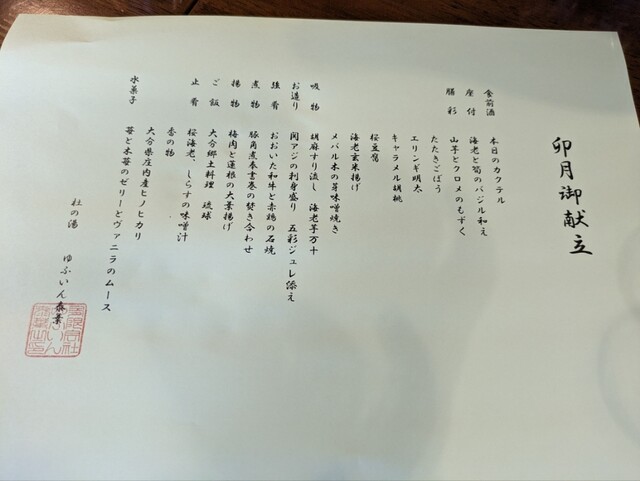 卯月御献立
食前酒 本日のカクテル
座付 海老と筍のバジル和え
膳彩 山芋とクロメのもずく
たたきごぼう
エリンギ明太
キャラメル胡桃
桜豆腐
海老玄米揚げ
メバル木の芽味噌焼き
吸物 胡麻すり流し 海老芋万十
お造り 関アジの利身盛り 五彩ジュレ添え
強肴 おおいた和牛と赤鶏の石焼
煮物 豚角煮奉書巻の焚き合わせ
揚物 梅肉と蓮根の大葉揚げ
ご飯 大分郷土料理 琉球
止肴 桜海老、しらすの味噌汁
香の物
大分県庄内産ヒノヒカリ
水菓子 苺と木苺のゼリーとヴァニラのムース
杜の湯 ゆふいん泰葉